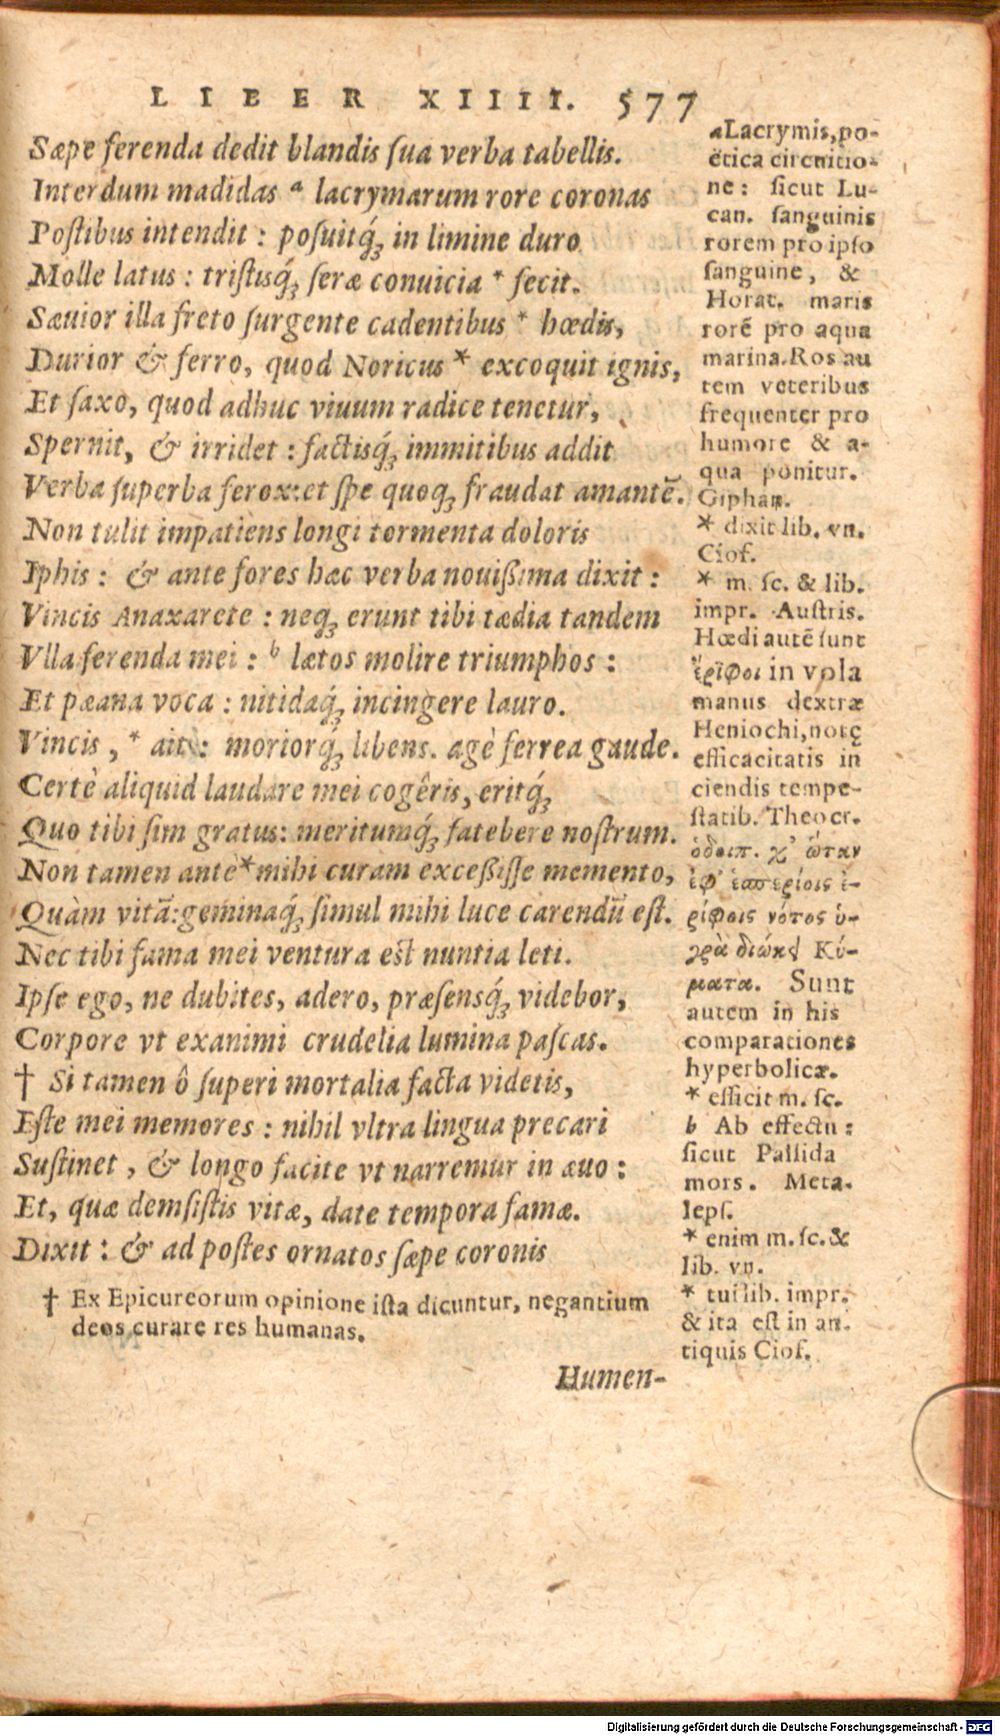 LIBER XIIII. 577
Sæpe ferenda dedit blandis ſua verba tabellis.
Interdum madidas ᵃ lacrymarum rore coronas
Poſtibus intendit : poſuitq́ꝫ in limine duro
Molle latus : triſtisq́ꝫ ſeræ conuicia * fecit.
Sæuior illa freto ſurgente cadentibus * hœdis,
Durior & ferro, quod Noricus * excoquit ignis,
Et ſaxo, quod adhuc viuum radice tenetur,
Spernit, & irridet : factisq́ꝫ immitibus addit
Verba ſuperba ferox: et ſpe quoqꝫ fraudat amantē.
Non tulit impatiens longi tormenta doloris
Iphis : & ante fores hæc verba nouißima dixit :
Vincis Anaxarete : neqꝫ erunt tibi tædia tandem
Vlla ferenda mei : ᵇ lætos molire triumphos :
Et pæana voca : nitidaq́ꝫ incingere lauro.
Vincis , * ait : moriorq́ꝫ libens. agè ferrea gaude.
Certè aliquid laudare mei cogêris, eritq́ꝫ
Quo tibi ſim gratus: meritumq́ꝫ fatebere noſtrum.
Non tamen antè * mihi curam exceßiſſe memento,
Quàm vitā: geminaq́ꝫ ſimul mihi luce carendū eſt.
Nec tibi fama mei ventura eſt nuntia leti.
Ipſe ego, ne dubites, adero, præſensq́ꝫ videbor,
Corpore vt exanimi crudelia lumina paſcas.
† Si tamen ô ſuperi mortalia facta videtis,
Eſte mei memores : nihil vltra lingua precari
Suſtinet , & longo facite vt narremur in æuo :
Et, quæ demſiſtis vitæ, date tempora famæ.
Dixit : & ad poſtes ornatos ſæpe coronis
† Ex Epicureorum opinione iſta dicuntur, negantium
deos curare res humanas.
Humen-
a Lacrymis, po-
ëtica circuitio-
ne : ſicut Lu-
can. ſanguinis
rorem pro ipſo
ſanguine, &
Horat. maris
rorē pro aqua
marina. Ros au
tem veteribus
frequenter pro
humore & a-
qua ponitur.
Giphan.
* dixit lib. vn.
Cioſ.
* m. ſc. & lib.
impr. Auſtris.
Hœdi autē ſunt
ἔριφοι in vola
manus dextræ
Heniochi, notę
efficacitatis in
ciendis tempe-
ſtatib. Theocr.
ὁδοιπ. χ' ὥταν
ἐφ' ἑσπερίοις ἐ-
ρίφοις νότος ὑ-
γρὰ διώκῃ Κύ-
ματα. Sunt
autem in his
comparationes
hyperbolicæ.
* efficit m. ſc.
b Ab effectu :
ſicut Pallida
mors. Meta-
lepſ.
* enim m. ſc. &
lib. vn.
* tui lib. impr.
& ita eſt in an-
tiquis Cioſ.
Digitalisierung gefördert durch die Deutsche Forschungsgemeinschaft - DFG